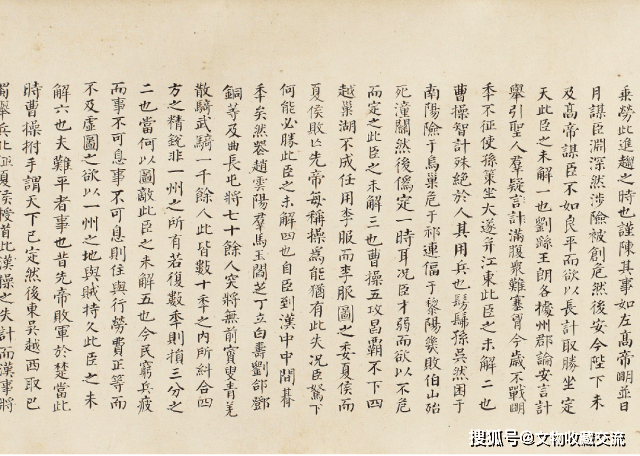 乘勞此進趨之時也謹陳其事如左髙帝明並日
月謀臣淵深然涉險被創危然後安今陛下未
及髙帝謀臣不如良平而欲以長計取勝坐定
天此臣之未解一也劉繇王朗各據州郡論安言計
舉引聖人羣疑言計滿腹衆難塞胷今歲不戰明
季不征使孫策坐大遂并江東此臣之未解二也
曹操智計殊絕於人其用兵也髣髴孫吳然困于
南陽險于烏巢危于祁連偪于黎陽幾敗伯山殆
死潼關然後偽定一時耳況臣才弱而欲以不危
而定之此臣之未解三也曹操五攻昌覇不下四
越巢湖不成任用李服而李服圖之委夏侯而
夏侯敗亡先帝每稱操為能猶有此失況臣駑下
何能必勝此臣之未解四也自臣到漢中中間朞
季矣然喪趙雲陽羣馬玉閻芝丁立白壽劉郃鄧
銅等及曲長屯將七十餘人突將無前賨叟青羌
散騎武騎一千餘人此皆數十季之內所糾合四
方之精銳非一州之所有若復數季則損三分之
二也當何以圖敵此臣之未解五也今民窮兵疲
而事不可息事不可息則住與行勞費正等而
不及虛圖之欲以一州之地與賊持久此臣之未
解六也夫難平者事也昔先帝敗軍於楚當此
時曹操拊手謂天下已定然後東吳越西取巴
蜀舉兵北征夏侯授首此漢操之失計而漢事將
搜狐号@文物收藏交流